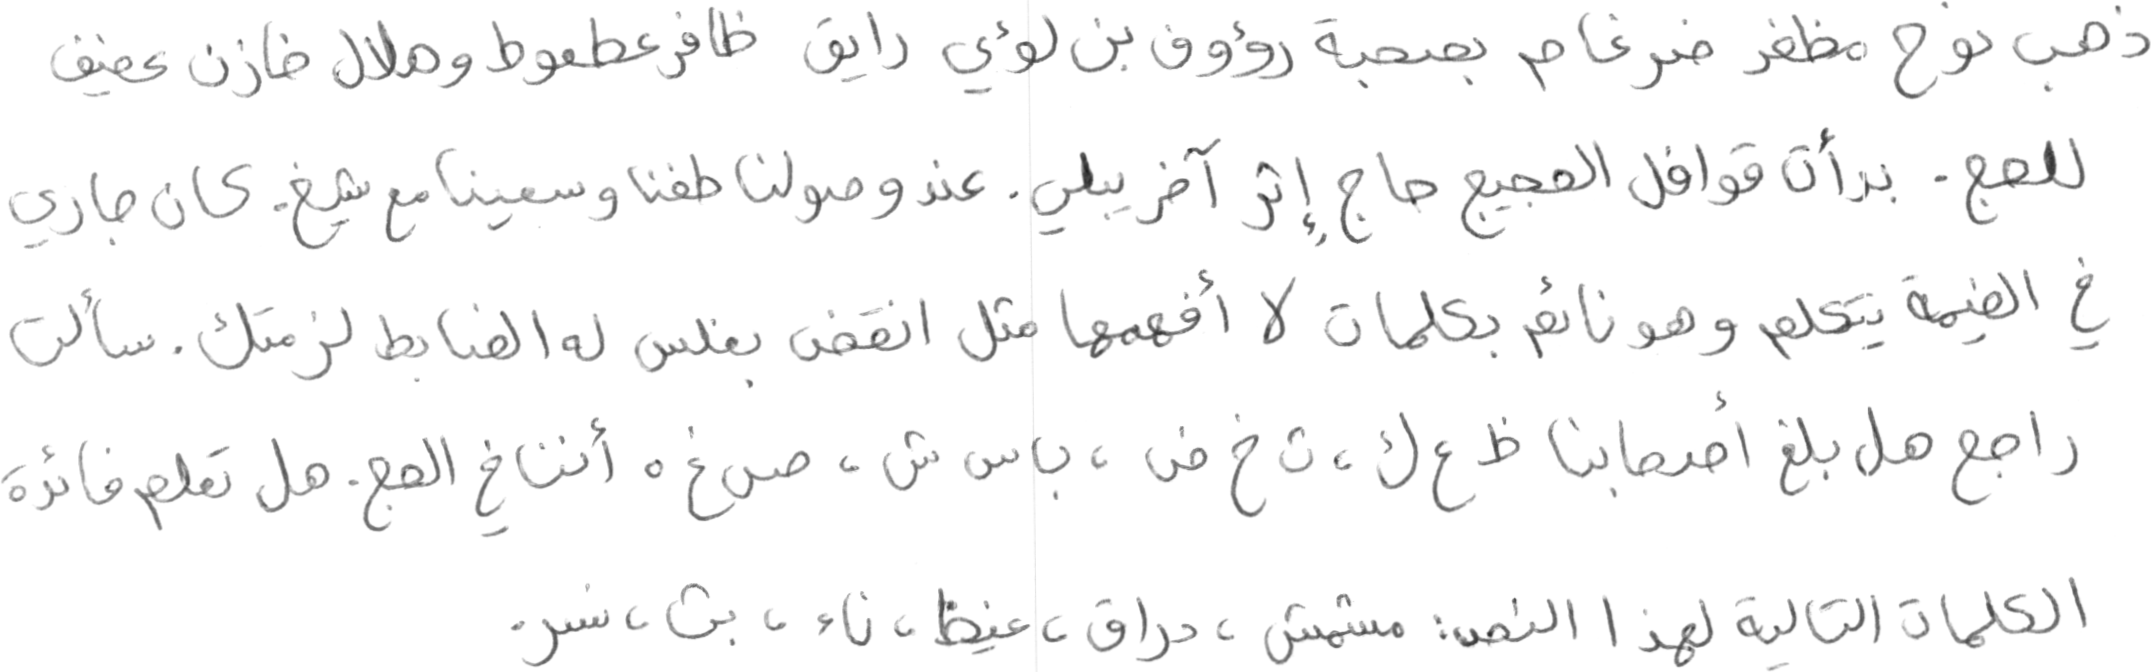 ذهب نوح مظفر ضرغام بصحبة رؤوف بن لؤي رايق ظافر عطعوط وهلال خازن عفيف
للحج. بدأت قوافل الحجيج حاج إثر آخر يبلي. عند وصولنا طفنا وسعينا مع شيخ. كان جاري
في الخيمة يتكلم وهو نائم بكلمات لا أفهمها مثل انقض بغلس له الضابط لزمتك. سألت
راجع هل بلغ أصحابنا ظ ع ك، ث خ ض، ب س ش، ص غ ه أننا في الحج. هل تعلم فائدة
الكلمات التالية لهذا النص: مشمش، دراق، غيظ، ناء، بث، نسر.